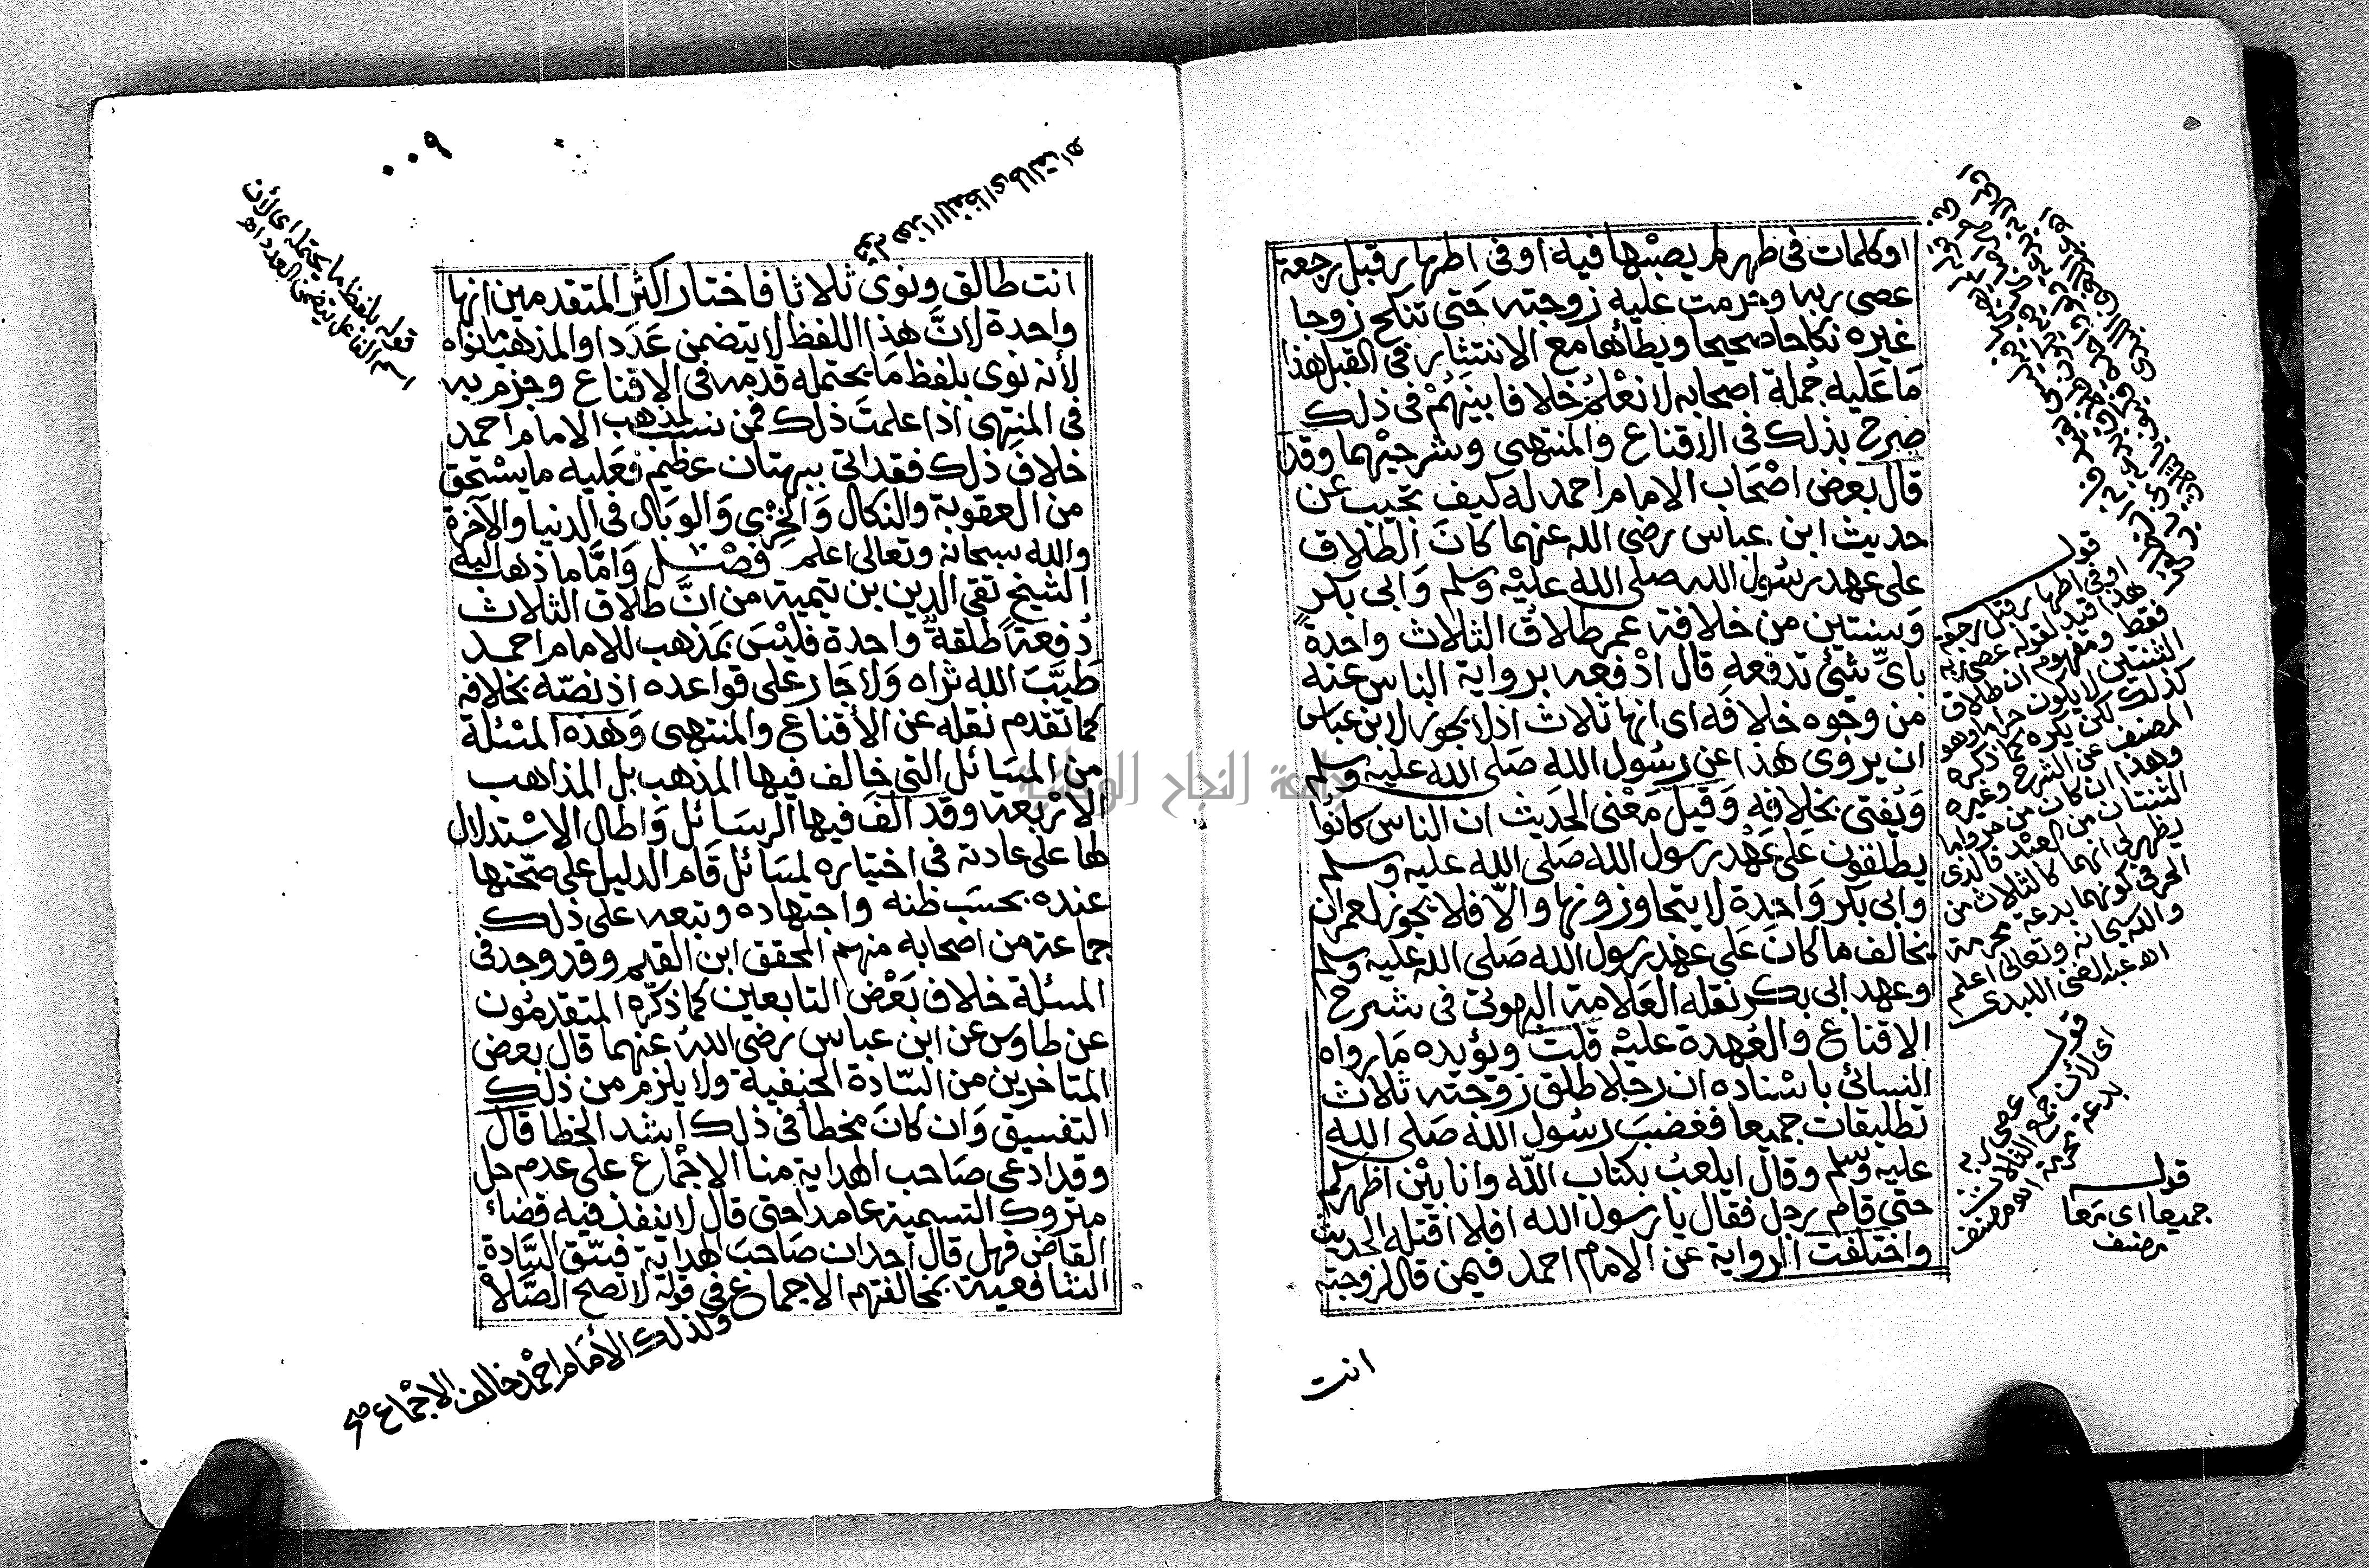 او كلمات فى طهر لم يصبها فيه او فى اطهار قبل رجعة
عصى ربه وحرمت عليه زوجته حتى تنكح زوجا
غيره نكاحا صحيحا ويطأها مع الانتشار فى القبل هذا
ما عليه جملة اصحابه لا نعلم خلافا بينهم فى ذلك
صرح بذلك فى الاقناع والمنتهى وشرحيهما وقد
قال بعض اصحاب الامام احمد له كيف تجيب عن
حديث ابن عباس رضى الله عنهما كان الطلاق
على عهد رسول الله صلى الله عليه وسلم وابى بكر
وسنتين من خلافة عمر طلاق الثلاث واحدة
باى شئ تدفعه قال ادفعه برواية الناس عنه
من وجوه خلافه اى انها ثلاث اذ لا يجوز لابن عباس
ان يروى هذا عن رسول الله صلى الله عليه وسلم
ويفتى بخلافه وقيل معنى الحديث ان الناس كانوا
يطلقون على عهد رسول الله صلى الله عليه وسلم
وابى بكر واحدة لا يتجاوزونها والا فلا يجوز لعمر ان
يخالف ما كان على عهد رسول الله صلى الله عليه وسلم
وعهد ابى بكر نقله العلامة البهوتى فى شرح
الاقناع والعهدة عليه قلت ويؤيده ما رواه
النسائى باسناده ان رجلا طلق زوجته ثلاث
تطليقات جميعا فغضب رسول الله صلى الله
عليه وسلم وقال ايلعب بكتاب الله وانا بين اظهركم
حتى قام رجل فقال يا رسول الله افلا اقتله الحديث
واختلفت الرواية عن الامام احمد فيمن قال لزوجته
انت
قوله
او فى اطهار قبل رجعة
هذا قيد لقوله عصى ربه
فقط ومفهوم ان طلاق
الثنتين لا يكون حراما وهو
كذلك لكن يكره كما ذكره
المصنف عن الشرح وغيره
وهذا ان كان من حر واما
الثنتان من العبد فالذى
يظهر لى انهما كالثلاث من
الحر فى كونهما بدعة محرمة
والله سبحانه وتعالى اعلم
اهـ عبد الغنى اللبدى
قوله عصى ربه
اى لأن جمع الثلاث
بدعة محرمة اهـ مصنف
قوله
جميعا اى معا
مصنف
٠٠٩
قوله هذا اللفظ اى طالق اهـ
قوله بلفظ ما يحتمله اى لأن
اسم الفاعل يتضمن العدد اهـ
انت طالق ونوى ثلاثا فاختار اكثر المتقدمين انها
واحدة لان هذا اللفظ لا يتضمن عددا والمذهب ما نواه
لأنه نوى بلفظ ما يحتمله قدمه فى الاقناع وجزم به
فى المنتهى اذا علمت ذلك فمن نسب لمذهب الامام احمد
خلاف ذلك فقد اتى ببهتان عظيم فعليه ما يستحق
من العقوبة والنكال والخزى والوبال فى الدنيا والآخرة
والله سبحانه وتعالى اعلم فصل واما ما ذهب اليه
الشيخ تقى الدين بن تيمية من ان طلاق الثلاث
دفعة طلقة واحدة فليس بمذهب للامام احمد
طيب الله ثراه ولا جار على قواعده اذ نصه بخلافه
كما تقدم نقله عن الأقناع والمنتهى وهذه المسئلة
من المسائل التى خالف فيها المذهب بل المذاهب
الاربعة وقد الف فيها الرسائل واطال الاستدلال
لها على عادته فى اختياره لمسائل قام الدليل على صحتها
عنده بحسب ظنه واجتهاده وتبعه على ذلك
جماعة من اصحابه منهم المحقق ابن القيم وقد وجد فى
المسئلة خلاف بعض التابعين كما ذكره المتقدمون
عن طاوس عن ابن عباس رضى الله عنهما قال بعض
المتاخرين من السادة الحنيفية ولا يلزم من ذلك
التفسيق وان كان مخطأ فى ذلك اشد الخطا قال
وقد ادعى صاحب الهداية منا الاجماع على عدم حل
متروك التسمية عامدا حتى قال لا ينفذ فيه قضاء
القاضى فهل قال احد ان صاحب الهداية فسق السادة
الشافعية بمخالفتهم الاجماع فى قوله لا تصح الصلاة
ولذلك الأمام احمد خالف الاجماع صح
جامعة النجاح الوطنية